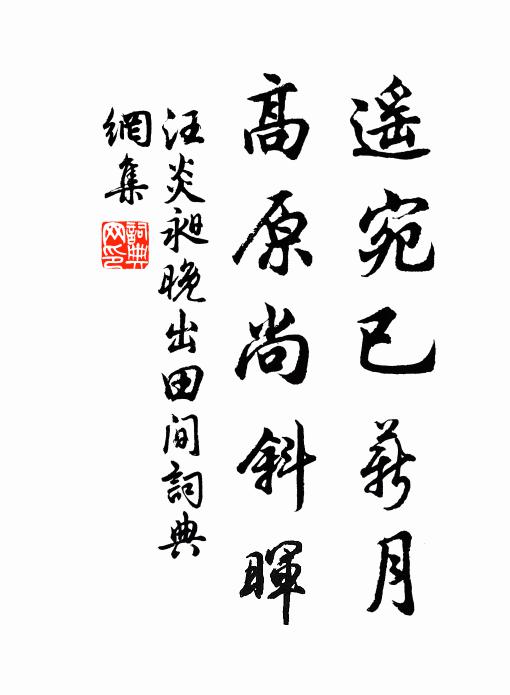 遥宛已新月
高原尚斜暉
汪炎昶晚出田间詞典
網集
詞典網印